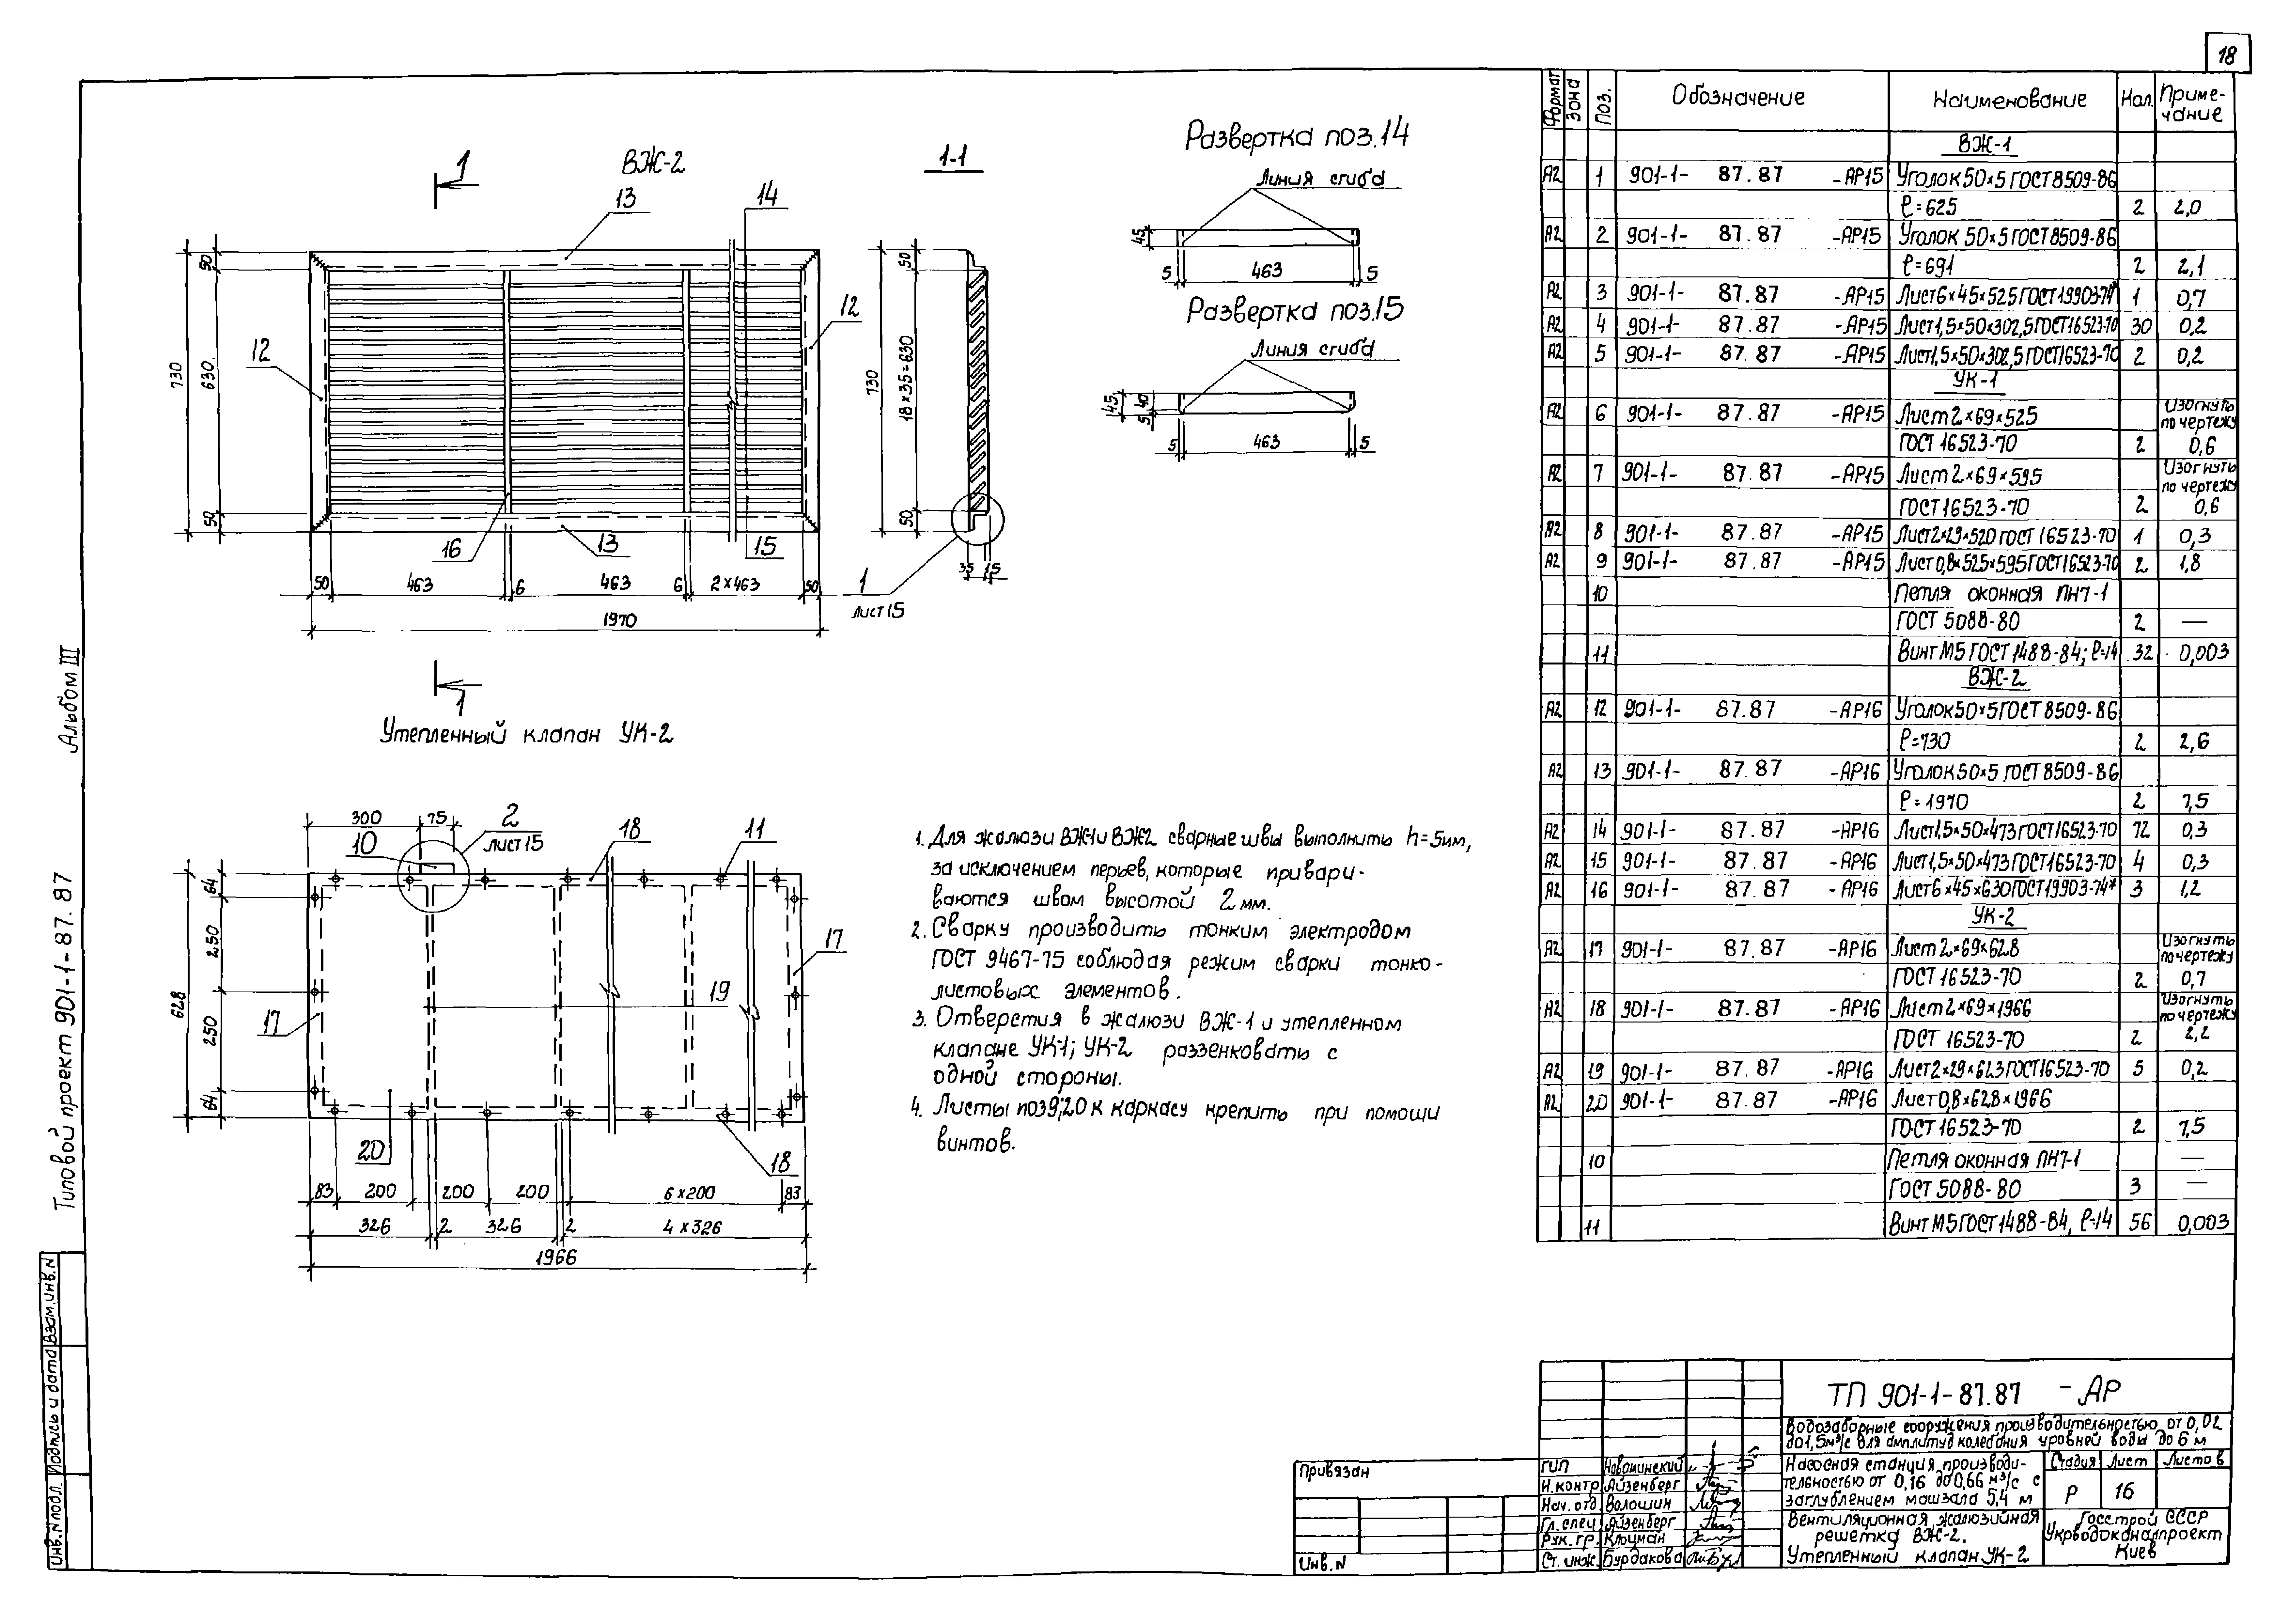 18
ВЖ-2
1
1-1
Развертка поз.14
Линия сгиба
45
5
463
5
Развертка поз.15
Линия сгиба
45
40
5
5
463
5
13
14
12
12
16
13
15
730
50
630
50
50
463
6
463
6
2×463
50
1970
730
50
18×35=630
50
35
15
1
лист 15
1
Утепленный клапан УК-2
300
75
2
лист 15
10
18
11
17
17
19
20
18
628
64
250
250
64
83
200
200
200
6×200
83
326
2
326
2
4×326
1966
1. Для жалюзи ВЖ1и ВЖ2 сварные швы выполнить h=5мм,
за исключением перьев, которые привари-
ваются швом высотой 2 мм.
2. Сварку производить тонким электродом
ГОСТ 9467-75 соблюдая режим сварки тонко-
листовых элементов.
3. Отверстия в жалюзи ВЖ-1 и утепленном
клапане УК-1; УК-2 раззенковать с
одной стороны.
4. Листы поз9;20 к каркасу крепить при помощи
винтов.
Формат Зона Поз. Обозначение Наименование Кол. Приме-чание
ВЖ-1
А2 1 901-1- 87.87 -АР15 Уголок 50×5 ГОСТ 8509-86
ℓ=625 2 2,0
А2 2 901-1- 87.87 -АР15 Уголок 50×5 ГОСТ 8509-86
ℓ=691 2 2,1
А2 3 901-1- 87.87 -АР15 Лист6×45×525 ГОСТ19903-74* 1 0,7
А2 4 901-1- 87.87 -АР15 Лист1,5×50×302,5 ГОСТ16523-70 30 0,2
А2 5 901-1- 87.87 -АР15 Лист1,5×50×302,5 ГОСТ16523-70 2 0,2
УК-1
А2 6 901-1- 87.87 -АР15 Лист 2×69×525 Изогнуть по чертежу
ГОСТ 16523-70 2 0,6
А2 7 901-1- 87.87 -АР15 Лист 2×69×595 Изогнуть по чертежу
ГОСТ16523-70 2 0,6
А2 8 901-1- 87.87 -АР15 Лист2×29×520 ГОСТ 16523-70 1 0,3
А2 9 901-1- 87.87 -АР15 Лист0,8×525×595ГОСТ16523-70 2 1,8
10 Петля оконная ПН7-1
ГОСТ 5088-80 2 —
11 Винт М5 ГОСТ 1488-84; ℓ=14 32 0,003
ВЖ-2
А2 12 901-1- 87.87 -АР16 Уголок50×5ГОСТ 8509-86
ℓ=730 2 2,6
А2 13 901-1- 87.87 -АР16 Уголок50×5 ГОСТ 8509-86
ℓ=1970 2 7,5
А2 14 901-1- 87.87 -АР16 Лист1,5×50×473ГОСТ16523-70 72 0,3
А2 15 901-1- 87.87 -АР16 Лист1,5×50×473ГОСТ16523-70 4 0,3
А2 16 901-1- 87.87 -АР16 Лист6×45×630ГОСТ19903-74* 3 1,2
УК-2
А2 17 901-1- 87.87 -АР16 Лист 2×69×628 Изогнуть по чертежу
ГОСТ 16523-70 2 0,7
А2 18 901-1- 87.87 -АР16 Лист 2×69×1966 Изогнуть по чертежу
ГОСТ 16523-70 2 2,2
А2 19 901-1- 87.87 -АР16 Лист2×29×623ГОСТ16523-70 5 0,2
А2 20 901-1- 87.87 -АР16 Лист0,8×628×1966
ГОСТ 16523-70 2 7,5
10 Петля оконная ПН7-1 —
ГОСТ 5088-80 3 —
11 Винт М5ГОСТ1488-84, ℓ=14 56 0,003
Типовой проект 901-1-87.87 Альбом III
Инв.N подл. Подпись и дата Взам.инв.N
Привязан
Инв.N
ГИП Новоминский
Н.контр Айзенберг
Нач.отд Волошин
Гл.спец Айзенберг
Рук.гр. Клоцман
Ст.инж. Бурдакова
ТП 901-1-87.87 -АР
Водозаборные сооружения производительностью от 0,02
до1,5м³/с для амплитуд колебания уровней воды до 6 м
Насосная станция производи-
тельностью от 0,16 до0,66 м³/с с
заглублением машзала 5,4 м
Стадия Лист Листов
Р 16
Вентиляционная жалюзийная
решетка ВЖ-2.
Утепленный клапан УК-2
Госстрой СССР
Укрводоканалпроект
Киев